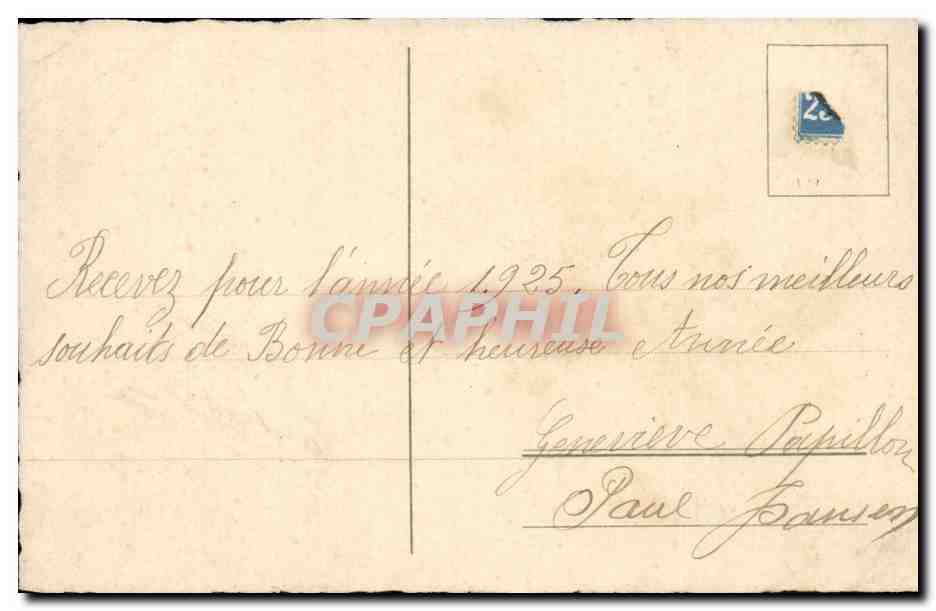 25
Recevez pour l'année 1.925. Tous nos meilleurs
souhaits de Bonne et heureuse Année
CPAPHIL
Geneviève Papillon
Paul Jansen